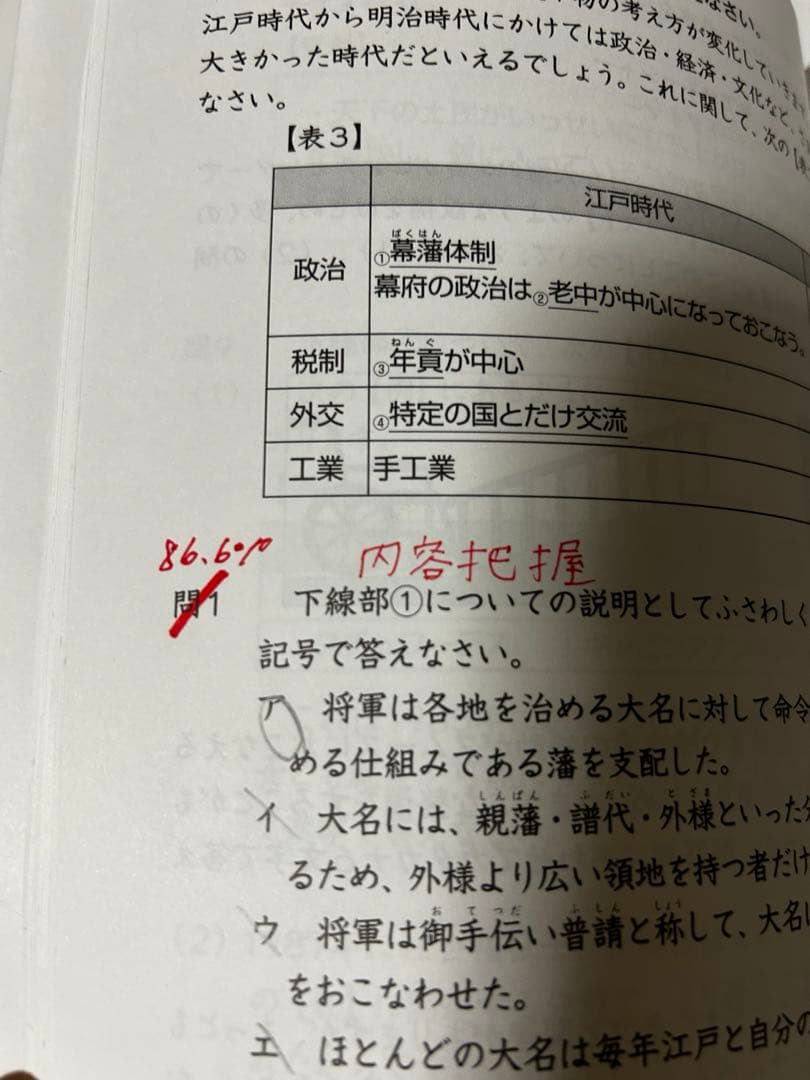 物の考え方が変化していきま
なさい。
江戸時代から明治時代にかけては政治・経済・文化など、
大きかった時代だといえるでしょう。これに関して、次の
なさい。
【表3】
江戸時代
政治
①幕藩体制
ばくはん
幕府の政治は②老中が中心になっておこなう。
税制
③年貢が中心
ねんぐ
外交
④特定の国とだけ交流
工業
手工業
86.6%
内容把握
問1 下線部①についての説明としてふさわしく
記号で答えなさい。
ア 将軍は各地を治める大名に対して命令
める仕組みである藩を支配した。
しんぱん ふだい とざま
イ 大名には、親藩・譜代・外様といった分
るため、外様より広い領地を持つ者だけ
おてつだ ふしん しょう
ウ 将軍は御手伝い普請と称して、大名に
をおこなわせた。
エ ほとんどの大名は毎年江戸と自分の